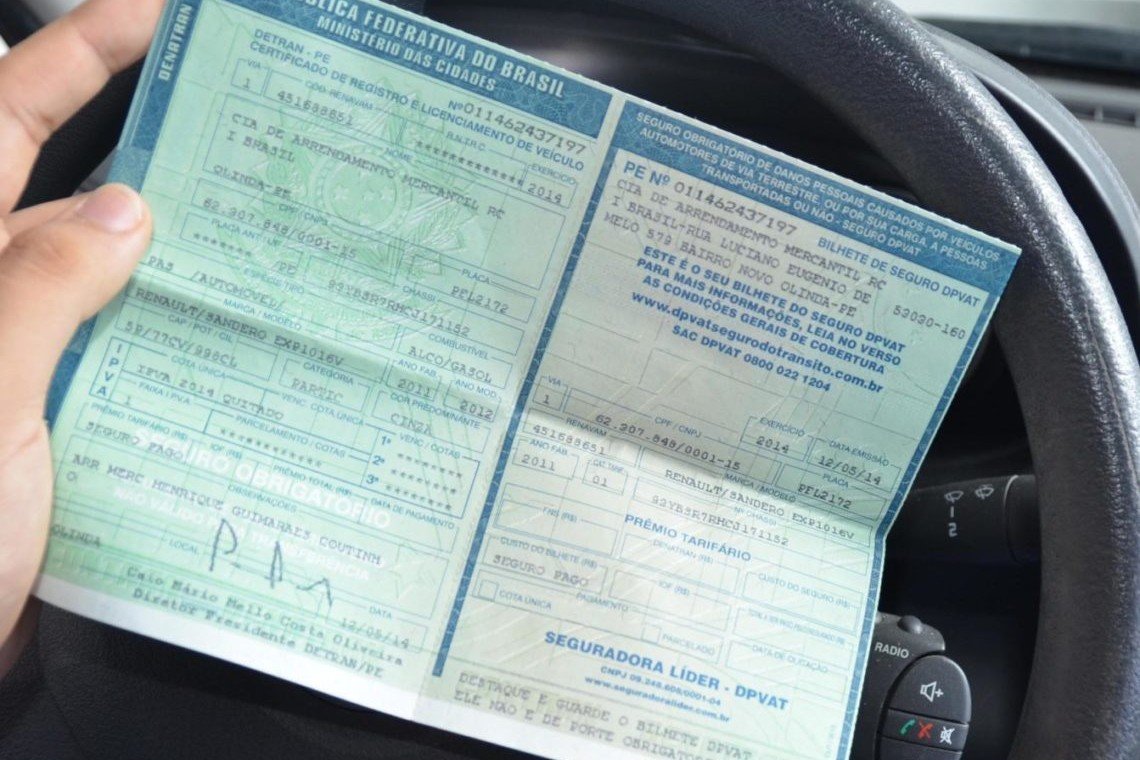 DENATRAN
BLICA FEDERATIVA DO BRASIL
MINISTÉRIO DAS CIDADES
DETRAN - PE Nº 011462437197
CERTIFICADO DE REGISTRO E LICENCIAMENTO DE VEÍCULO
VIA CÓD. RENAVAM R.N.T.R.C EXERCÍCIO
1 451688651 ************** 2014
NOME
CIA DE ARRENDAMENTO MERCANTIL RC
I BRASIL
OLINDA-PE
CPF / CNPJ PLACA
62.307.848/0001-15 PFL2172
PLACA ANT / UF CHASSI
PE 93YBSR7RHCJ171152
ESPÉCIE TIPO COMBUSTÍVEL
PAS /AUTOMÓVEL ALCO/GASOL
MARCA / MODELO ANO FAB. ANO MOD.
RENAULT/SANDERO EXP1016V 2011 2012
CAP / POT / CIL CATEGORIA COR PREDOMINANTE
5P/77CV/998CL PARTIC CINZA
IPVA
COTA ÚNICA VENC. COTA ÚNICA VENC / COTAS
IPVA 2014 QUITADO 1ª
FAIXA I.P.V.A. PARCELAMENTO / COTAS 2ª
1 3ª
PRÊMIO TARIFÁRIO (R$) IOF (R$) PRÊMIO TOTAL (R$) DATA DE PAGAMENTO
SEGURO PAGO
SEGURO OBRIGATÓRIO
OBSERVAÇÕES
ARR MERC HENRIQUE GUIMARAES COUTINH
O
LOCAL DATA
OLINDA 12/05/14
Caio Mário Mello Costa Oliveira
Diretor Presidente
DETRAN/PE
SEGURO OBRIGATÓRIO DE DANOS PESSOAIS CAUSADOS POR VEÍCULOS
AUTOMOTORES DE VIA TERRESTRE, OU POR SUA CARGA, A PESSOAS
TRANSPORTADAS OU NÃO - SEGURO DPVAT
PE Nº 011462437197 BILHETE DE SEGURO DPVAT
CIA DE ARRENDAMENTO MERCANTIL RC
I BRASIL-RUA LUCIANO EUGENIO DE
MELO 579 BAIRRO NOVO OLINDA-PE 53030-160
ESTE É O SEU BILHETE DO SEGURO DPVAT
PARA MAIS INFORMAÇÕES, LEIA NO VERSO
AS CONDIÇÕES GERAIS DE COBERTURA
www.dpvatsegurodotransito.com.br
SAC DPVAT 0800 022 1204
VIA CPF / CNPJ EXERCÍCIO DATA EMISSÃO
1 62.307.848/0001-15 2014 12/05/14
RENAVAM MARCA / MODELO PLACA
451688651 RENAULT/SANDERO EXP1016V PFL2172
ANO FAB. CAT. TARIF Nº CHASSI
2011 01 93YBSR7RHCJ171152
PRÊMIO TARIFÁRIO
FNS (R$) DENATRAN (R$) CUSTO DO SEGURO (R$)
CUSTO DO BILHETE (R$) IOF (R$)
SEGURO PAGO
PAGAMENTO DATA DE QUITAÇÃO
COTA ÚNICA PARCELADO
SEGURADORA LÍDER - DPVAT
CNPJ 09.248.608/0001-04
www.seguradoralider.com.br
DESTAQUE E GUARDE O BILHETE DPVAT
ELE NAO E DE PORTE OBRIGATO
RADIO
1
2